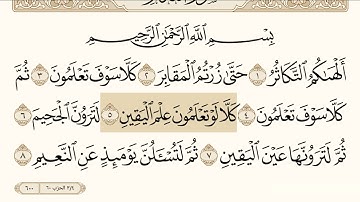 بِسْمِ اللَّهِ الرَّحْمَٰنِ الرَّحِيمِ
أَلْهَاكُمُ التَّكَاثُرُ ١ حَتَّىٰ زُرْتُمُ الْمَقَابِرَ ٢ كَلَّا سَوْفَ تَعْلَمُونَ ٣ ثُمَّ
كَلَّا سَوْفَ تَعْلَمُونَ ٤ كَلَّا لَوْ تَعْلَمُونَ عِلْمَ الْيَقِينِ ٥ لَتَرَوُنَّ الْجَحِيمَ ٦
ثُمَّ لَتَرَوُنَّهَا عَيْنَ الْيَقِينِ ٧ ثُمَّ لَتُسْأَلُنَّ يَوْمَئِذٍ عَنِ النَّعِيمِ ٨
٦٠٠